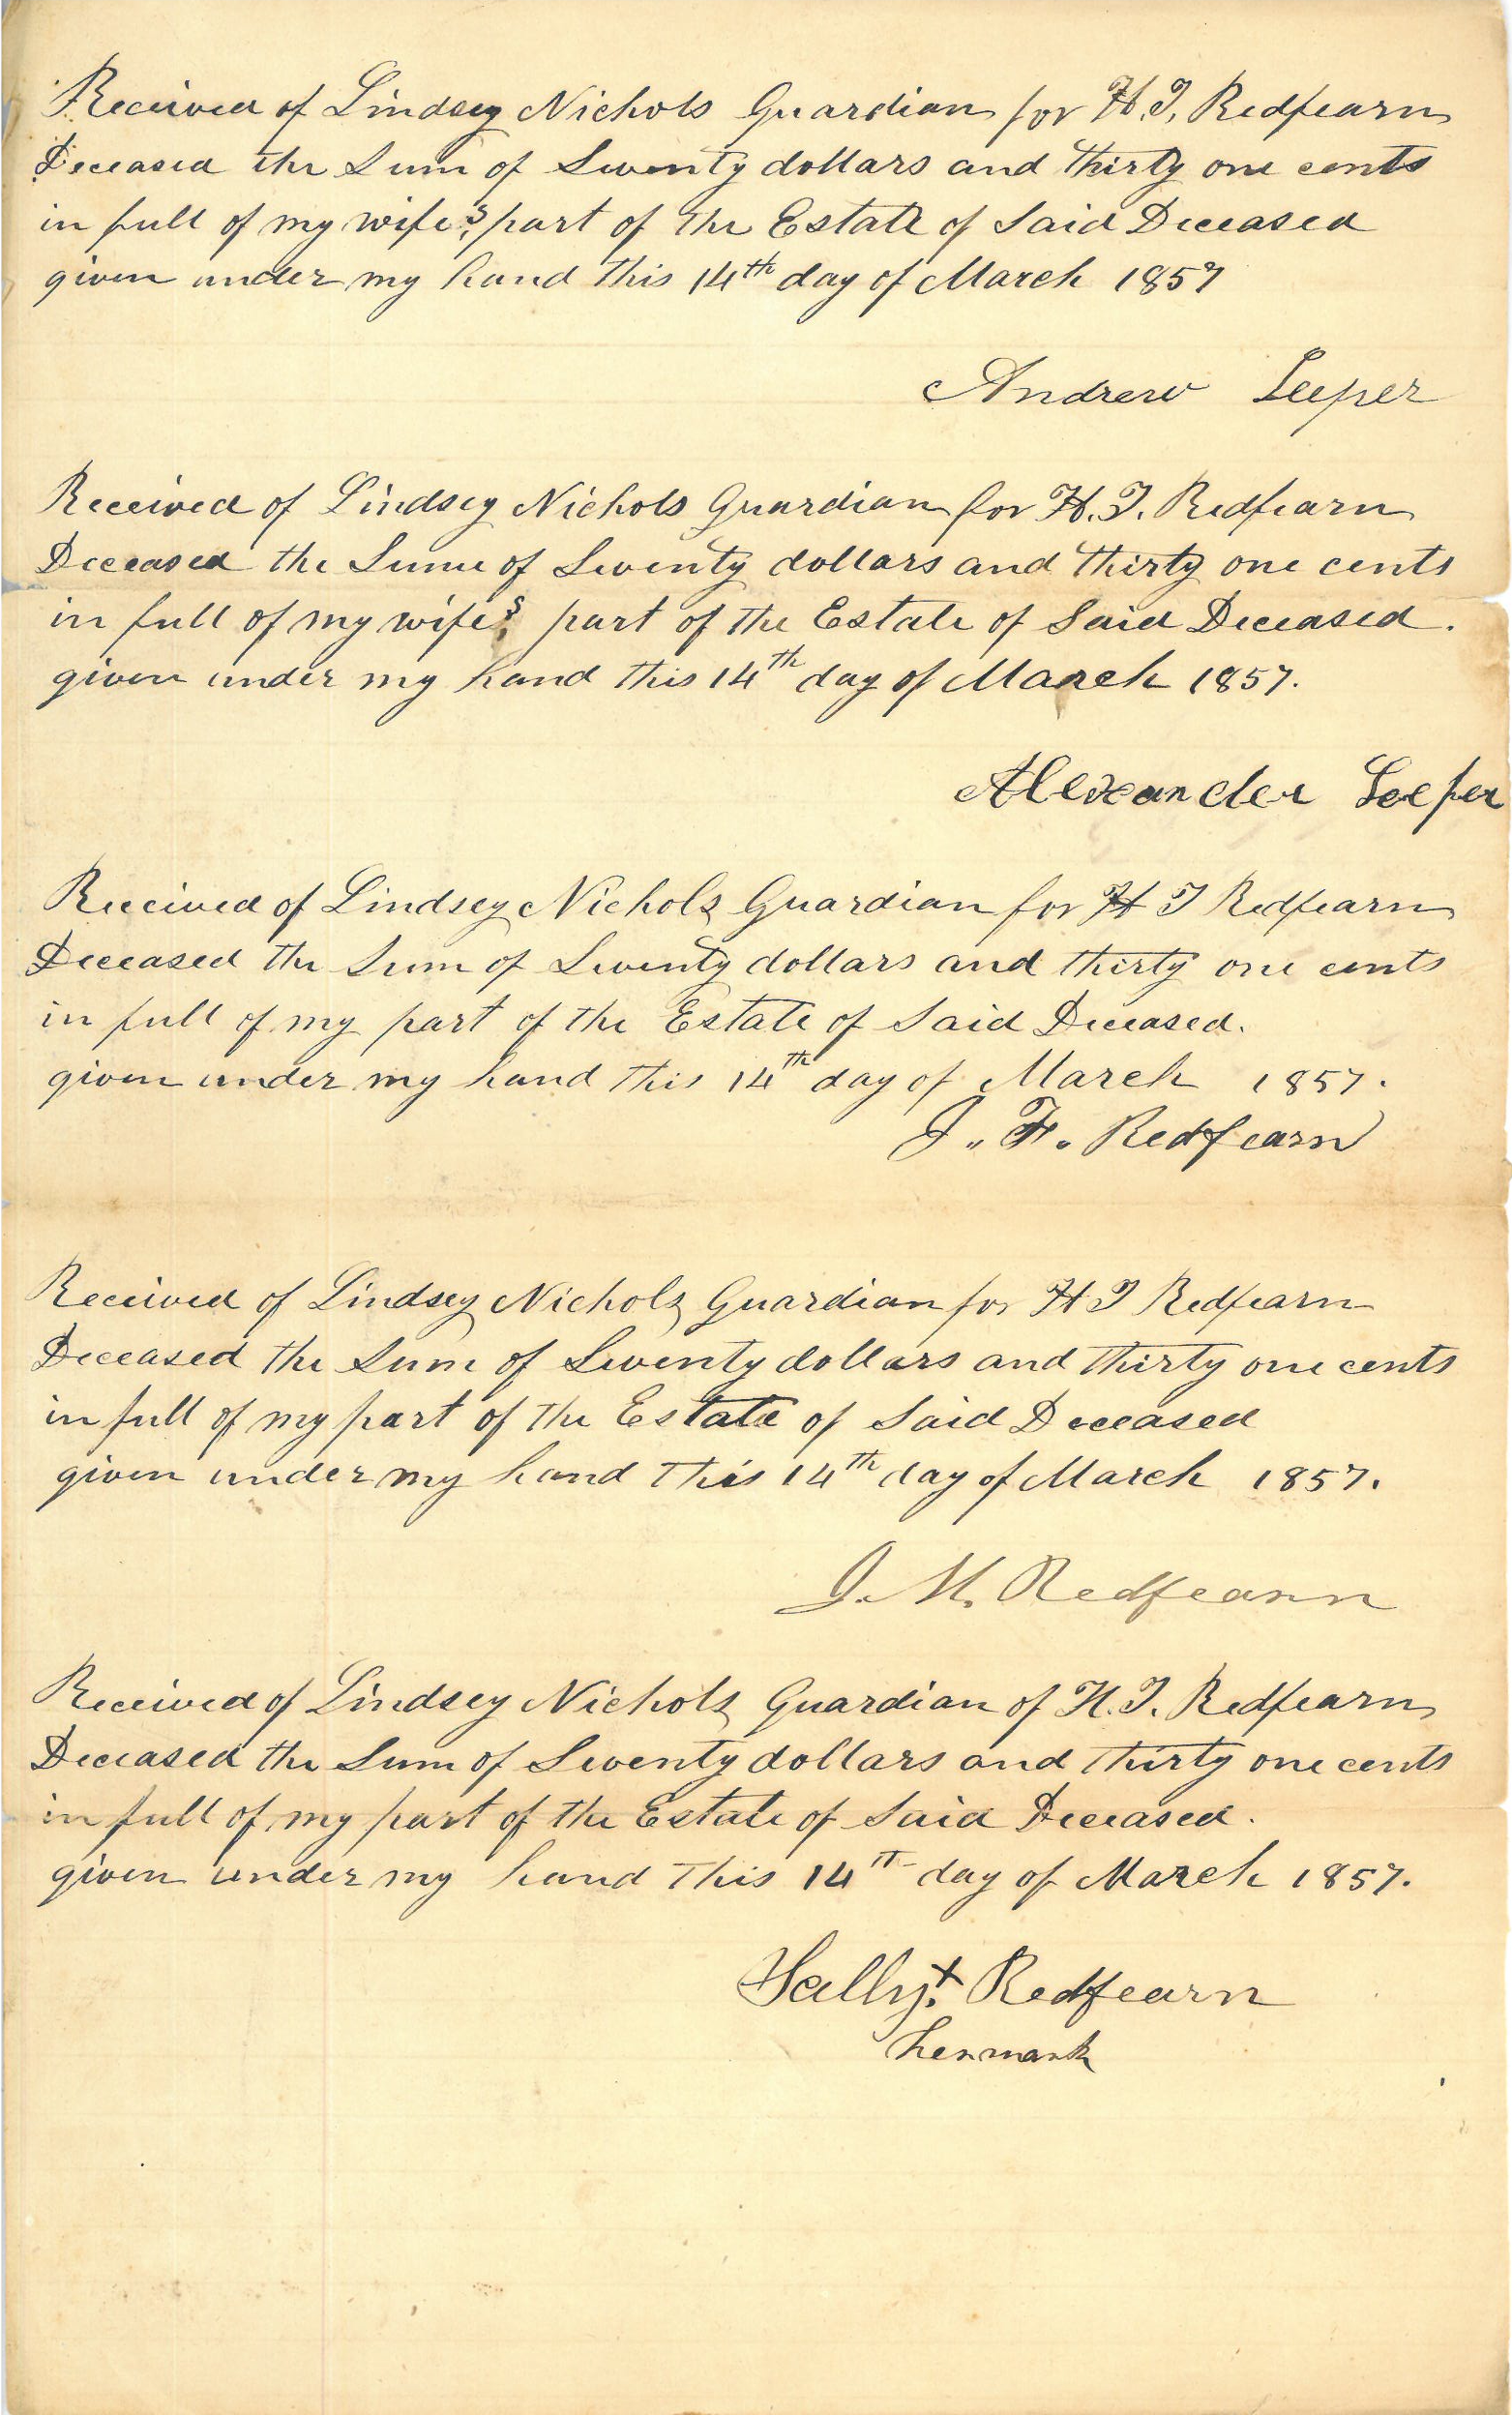 Received of Lindsey Nichols Guardian for H. T. Redfearn
Deceased the Sum of Twenty dollars and thirty one cents
in full of my wife's part of the Estate of Said Deceased
given under my hand this 14th day of March 1857
Andrew Leeper
Received of Lindsey Nichols Guardian for H. T. Redfearn
Deceased the Sume of Twenty dollars and thirty one cents
in full of my wife's part of the Estate of Said Deceased.
given under my hand this 14th day of March 1857.
Alexander Leeper
Received of Lindsey Nichols Guardian for H T Redfearn
Deceased the Sum of Twenty dollars and thirty one cents
in full of my part of the Estate of Said Deceased.
given under my hand this 14th day of March 1857.
J. F. Redfearn
Received of Lindsey Nichols Guardian for H T Redfearn
Deceased the Sum of Twenty dollars and thirty one cents
in full of my part of the Estate of Said Deceased
given under my hand this 14th day of March 1857.
J. M. Redfearn
Received of Lindsey Nichols Guardian of H. T. Redfearn
Deceased the Sum of Twenty dollars and thirty one cents
in full of my part of the Estate of Said Deceased.
given under my hand this 14th day of March 1857.
Sally X Redfearn
her mark